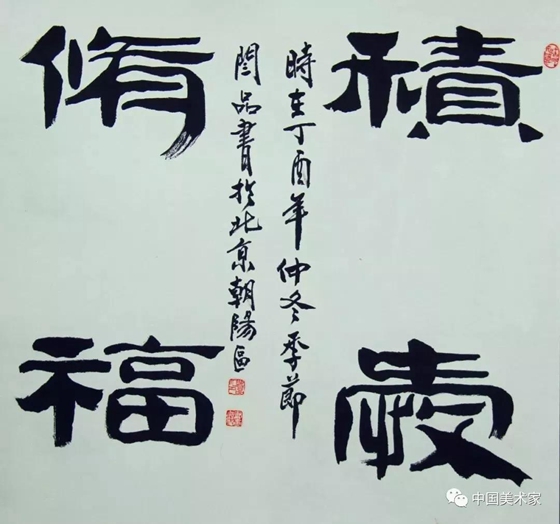 積
時在丁酉年仲冬季節
閆品書於北京朝陽區
脩福
中国美术家